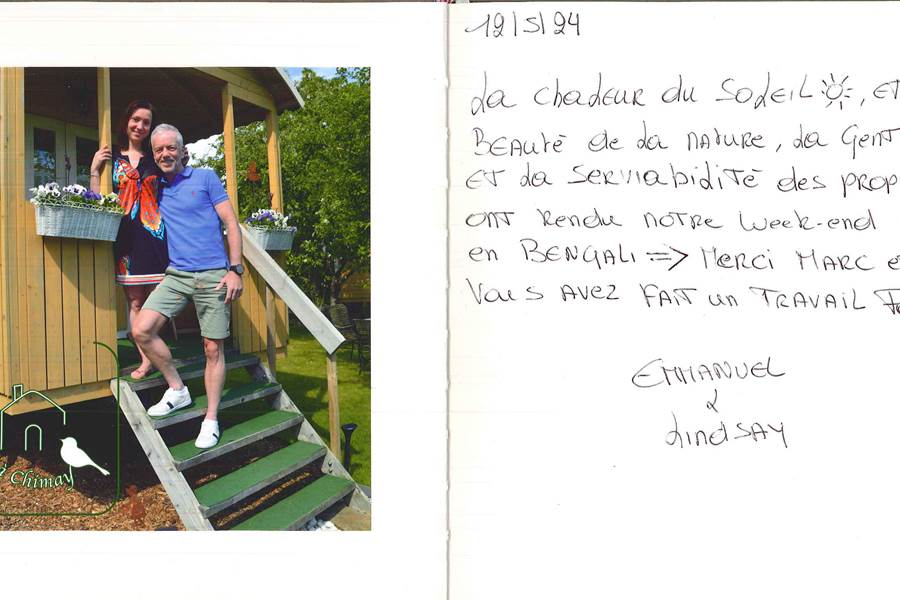 Chimay
12/5/24
La chaleur du SOLEIL, ET
BEAUTÉ de La NATURE, La GENT
ET La SERVIABILITÉ des PROP
ONT RENDU NOTRE WEEK-END
en BENGALI => MERCI MARC e
VOUS AVEZ FAIT un TRAVAIL
EMMANUEL
&
LINDSAY